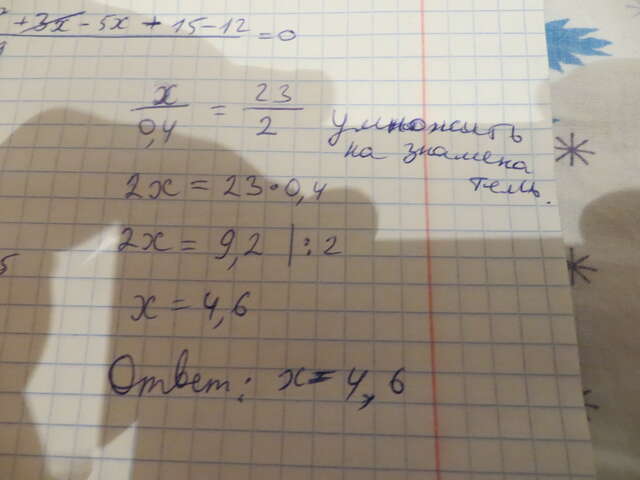 + 3x - 5x + 15 - 12 = 0
x/0,4 = 23/2
умножить
на знамена
тель.
2x = 23 · 0,4
2x = 9,2 | : 2
5
x = 4,6
Ответ: x = 4,6